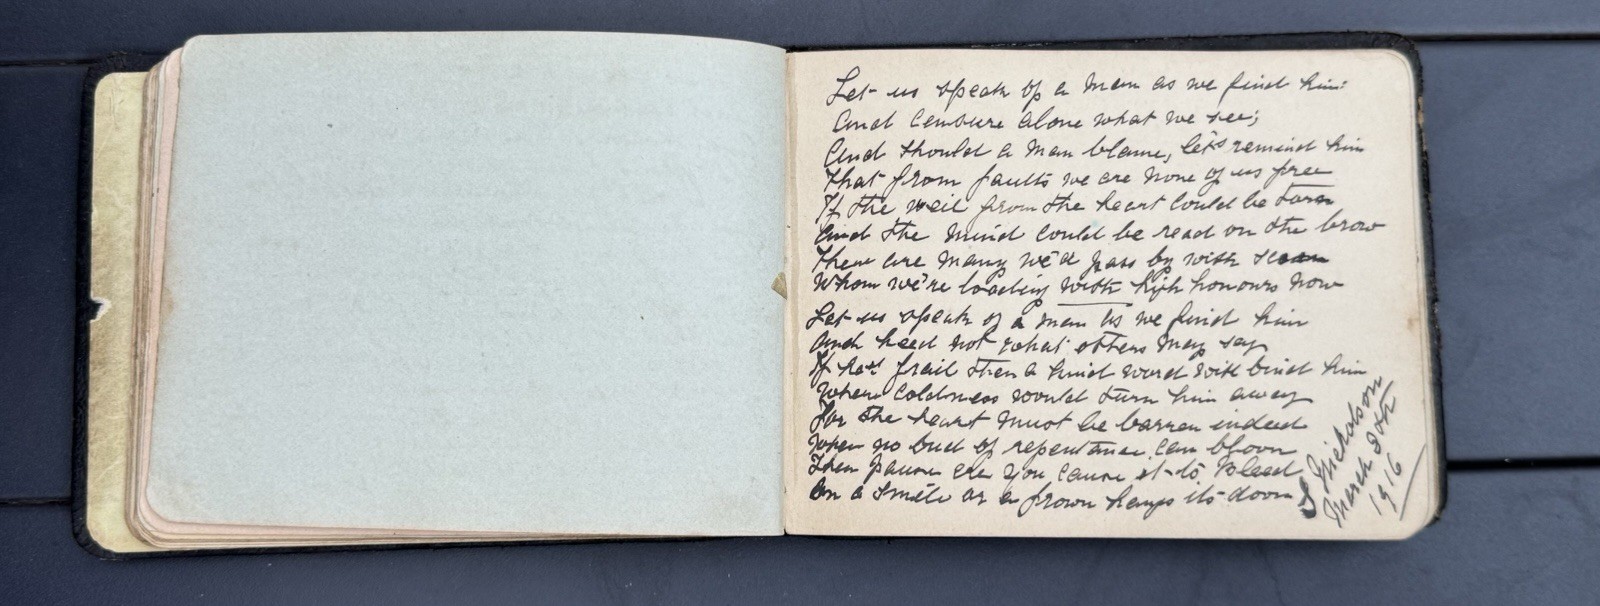 Let us speak of a man as we find him:
And censure alone what we see;
And should a man blame, let's remind him
That from faults we are none of us free
If the veil from the heart could be torn
And the mind could be read on the brow
There are many we'd pass by with scorn
Whom we're loading with high honours now
Let us speak of a man as we find him
And heed not what others may say
If he's frail then a kind word will bind him
Where coldness would turn him away
For the heart must be barren indeed
Where no bud of repentance can bloom
Then pause ere you cause it to bleed
On a smile or a frown hangs its doom
J Nicholson
March 8th
1916